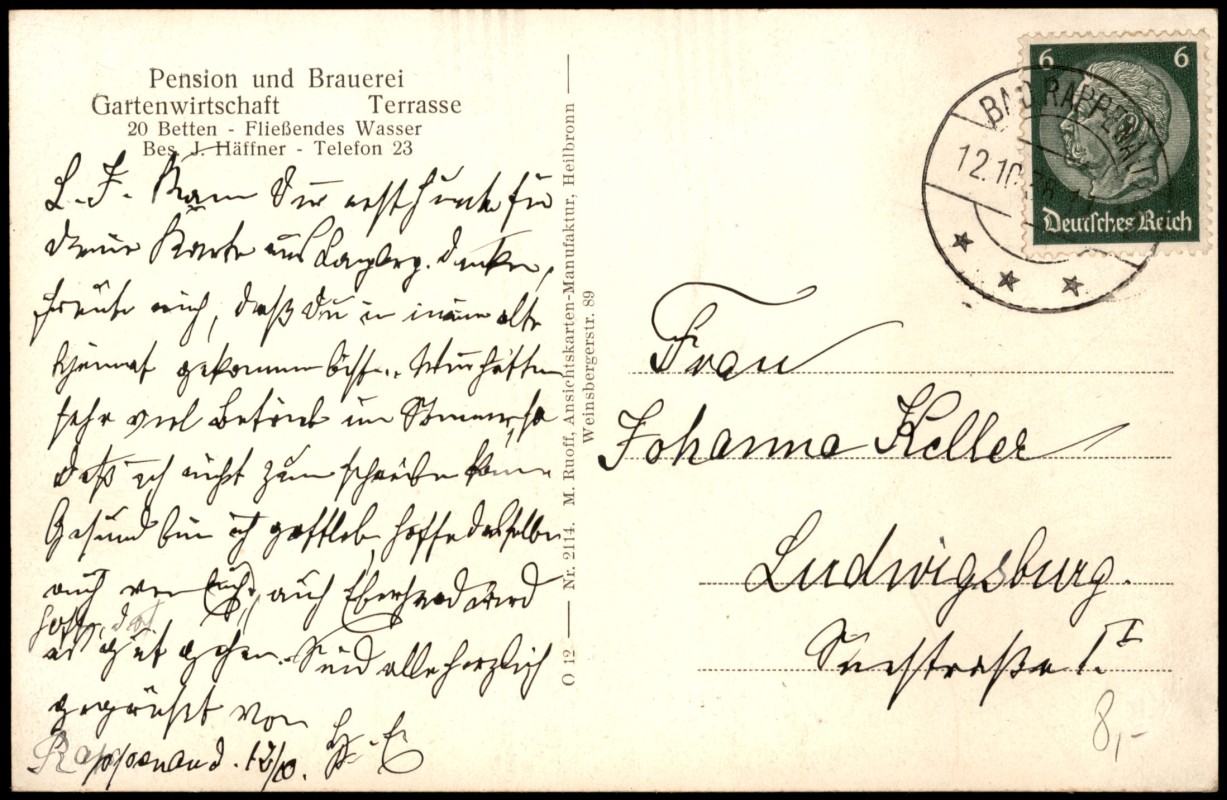 Pension und Brauerei
Gartenwirtschaft Terrasse
20 Betten - Fließendes Wasser
Bes. J. Häffner - Telefon 23
L. F. Kann Dir erst heute für
Deine Karte aus Danken,
freute mich, daß Du in alte
Heimat gekommen bist. Wir hatten
sehr viel Betrieb im Sommer, so
daß ich nicht zum schreiben kam
Gesund bin ich gottlob, hoffe dasselbe
auch von Euch, auch Eberhard wird
hoffe, daß
es gut gehen. Seid alle herzlich
gegrüßt von
Rappenaud. 12/10.
O 12 — Nr. 2114. M. Ruoff, Ansichtskarten-Manufaktur, Heilbronn
Weinsbergerstr. 89
6 6
Deutsches Reich
BAD RAPPENAU
12.10.
Frau
Johanna Keller
Ludwigsburg.
Seestraße
8,-